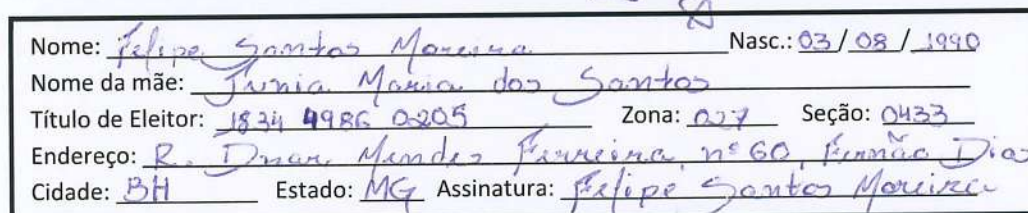 Nome: Felipe Santos Moreira Nasc.: 03/08/1990
Nome da mãe: Junia Maria dos Santos
Título de Eleitor: 1834 4986 0205 Zona: 027 Seção: 0433
Endereço: R. Mendes Ferreira, nº 60, Fernão Dias
Cidade: BH Estado: MG Assinatura: Felipe Santos Moreira